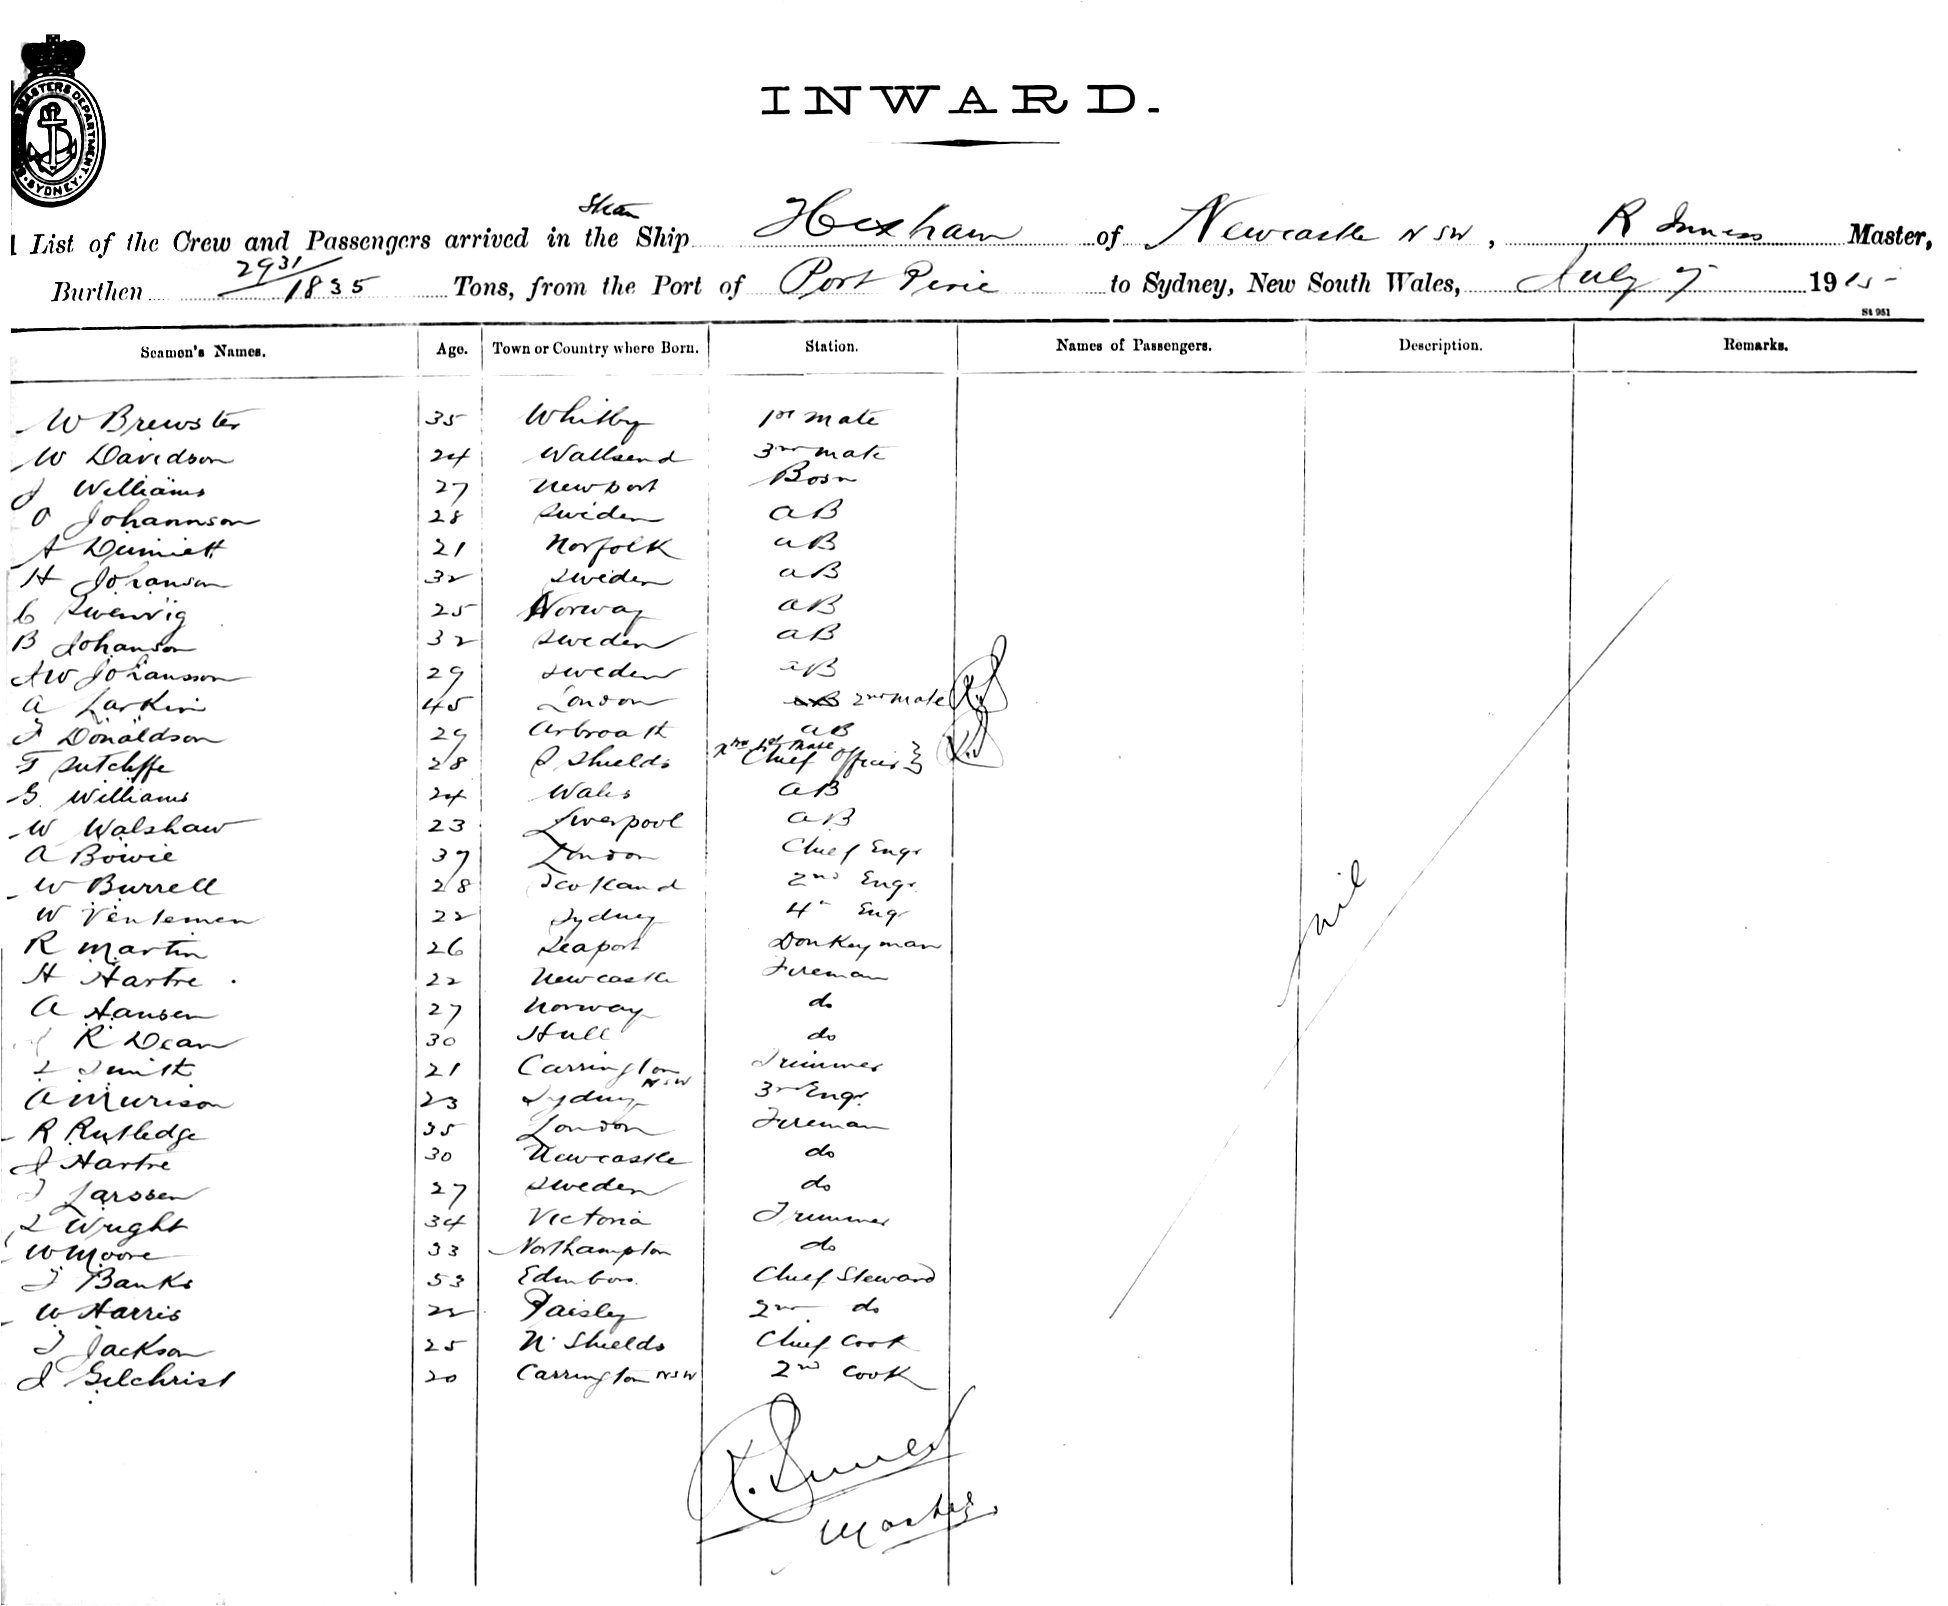 MASTERS DEPARTMENT
SYDNEY
INWARD.
Steam
List of the Crew and Passengers arrived in the Ship Hexham of Newcastle NSW, R Inness Master,
Burthen 2931/1835 Tons, from the Port of Port Pirie to Sydney, New South Wales, July 7 1915
St 951
Seamen's Names. Age. Town or Country where Born. Station. Names of Passengers. Description. Remarks.
W Brewster 35 Whitby 1st mate
W Davidson 24 Wallsend 3rd mate
J Williams 27 Newport Bosn
O Johannson 28 Sweden AB
A 21 Norfolk AB
H Johanson 32 Sweden AB
C Swenvig 25 Norway AB
B Johanson 32 Sweden AB
AW Johansson 29 Sweden AB
A Larkin 45 London AB 2nd mate
J Donaldson 29 Arbroath AB
T Sutcliffe 28 S Shields 1st mate Chief Officer
G Williams 24 Wales AB
W Walshaw 23 Liverpool AB
A Bowie 37 London Chief Engr
W Burrell 28 Scotland 2nd Engr.
W Ventemen 22 Sydney 4th Engr
R Martin 26 Seaport Donkeyman
H Hartre 22 Newcastle Fireman
A Hansen 27 Norway do
R Dean 30 Hull do
L Smith 21 Carrington NSW Trimmer
A Murison 23 Sydney 3rd Engr.
R Rutledge 35 London Fireman
J Hartre 30 Newcastle do
J Larssen 27 Sweden do
L Wright 34 Victoria Trimmer
W Moore 33 Northampton do
J Banks 53 Edinboro Chief Steward
W Harris 22 Paisley 2nd do
J Jackson 25 N. Shields Chief Cook
J Gilchrist 20 Carrington NSW 2nd Cook
nil
R. Inness
Master